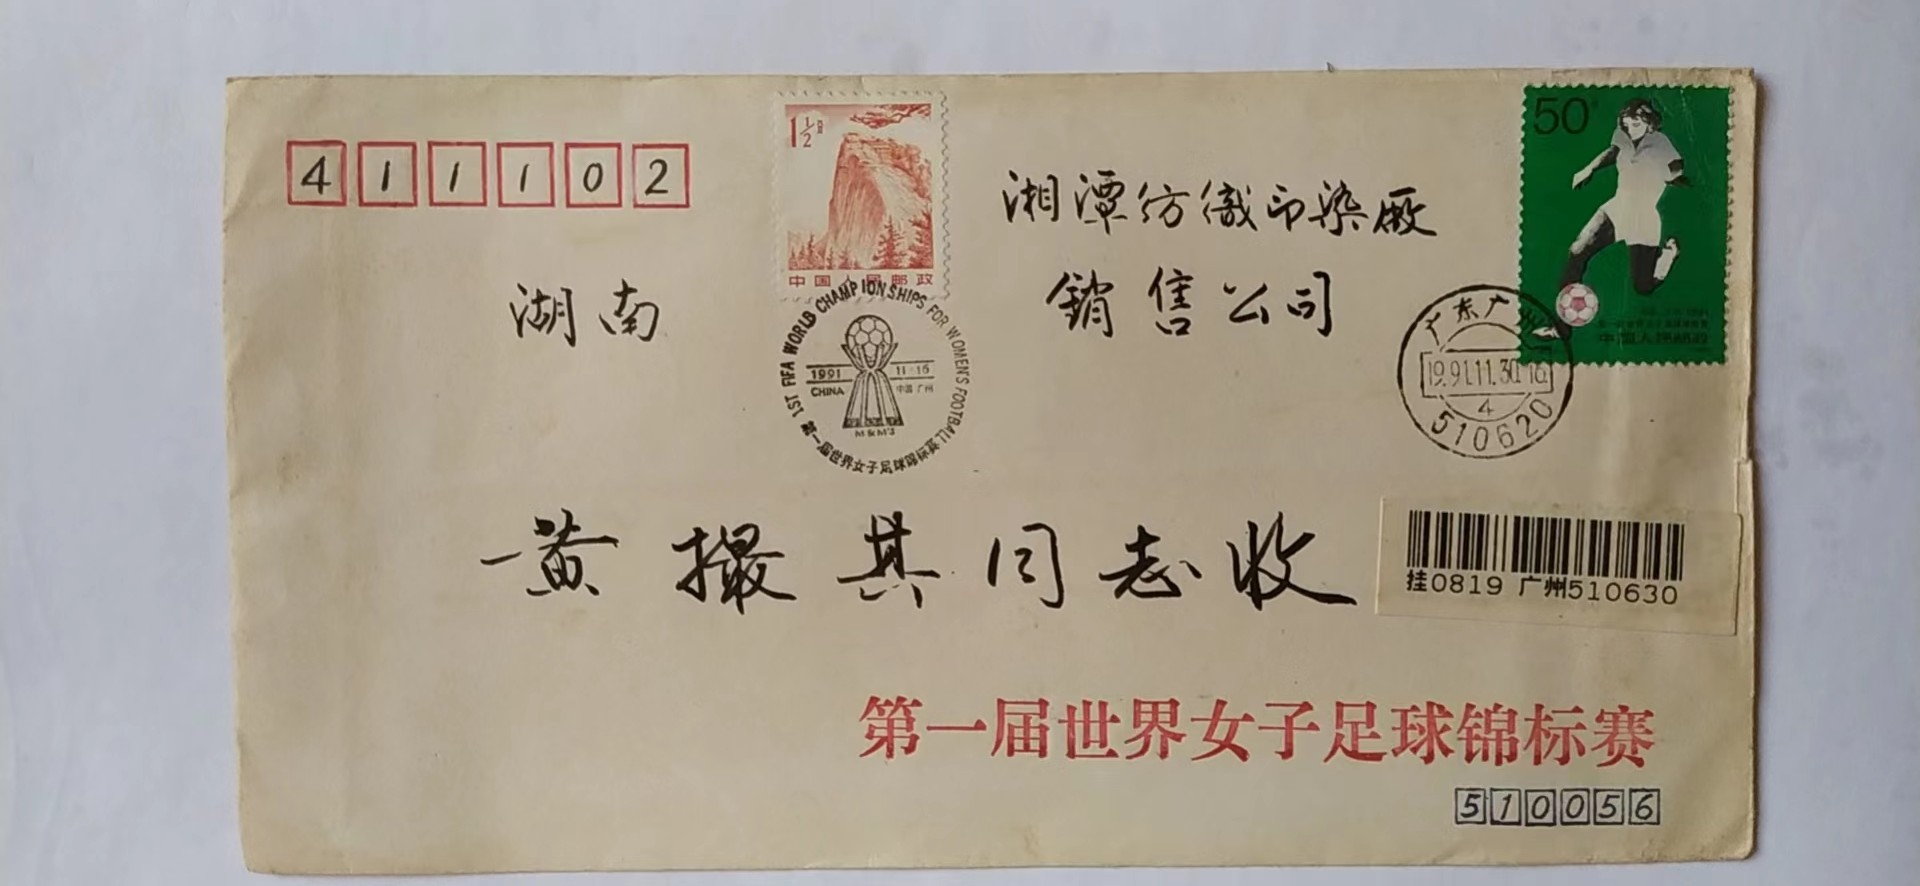 411102
1½分
中国人民邮政
50分
中国人民邮政
湖南
湘潭纺织印染厰
销售公司
1ST FIFA WORLD CHAMPIONSHIPS FOR WOMEN'S FOOTBALL
1991 11-16
CHINA 中国 广州
M&M'S
第一届世界女子足球锦标赛
广东广州
1991.11.30.16
4
510620
黄撮其同志收
挂0819 广州510630
第一届世界女子足球锦标赛
510056